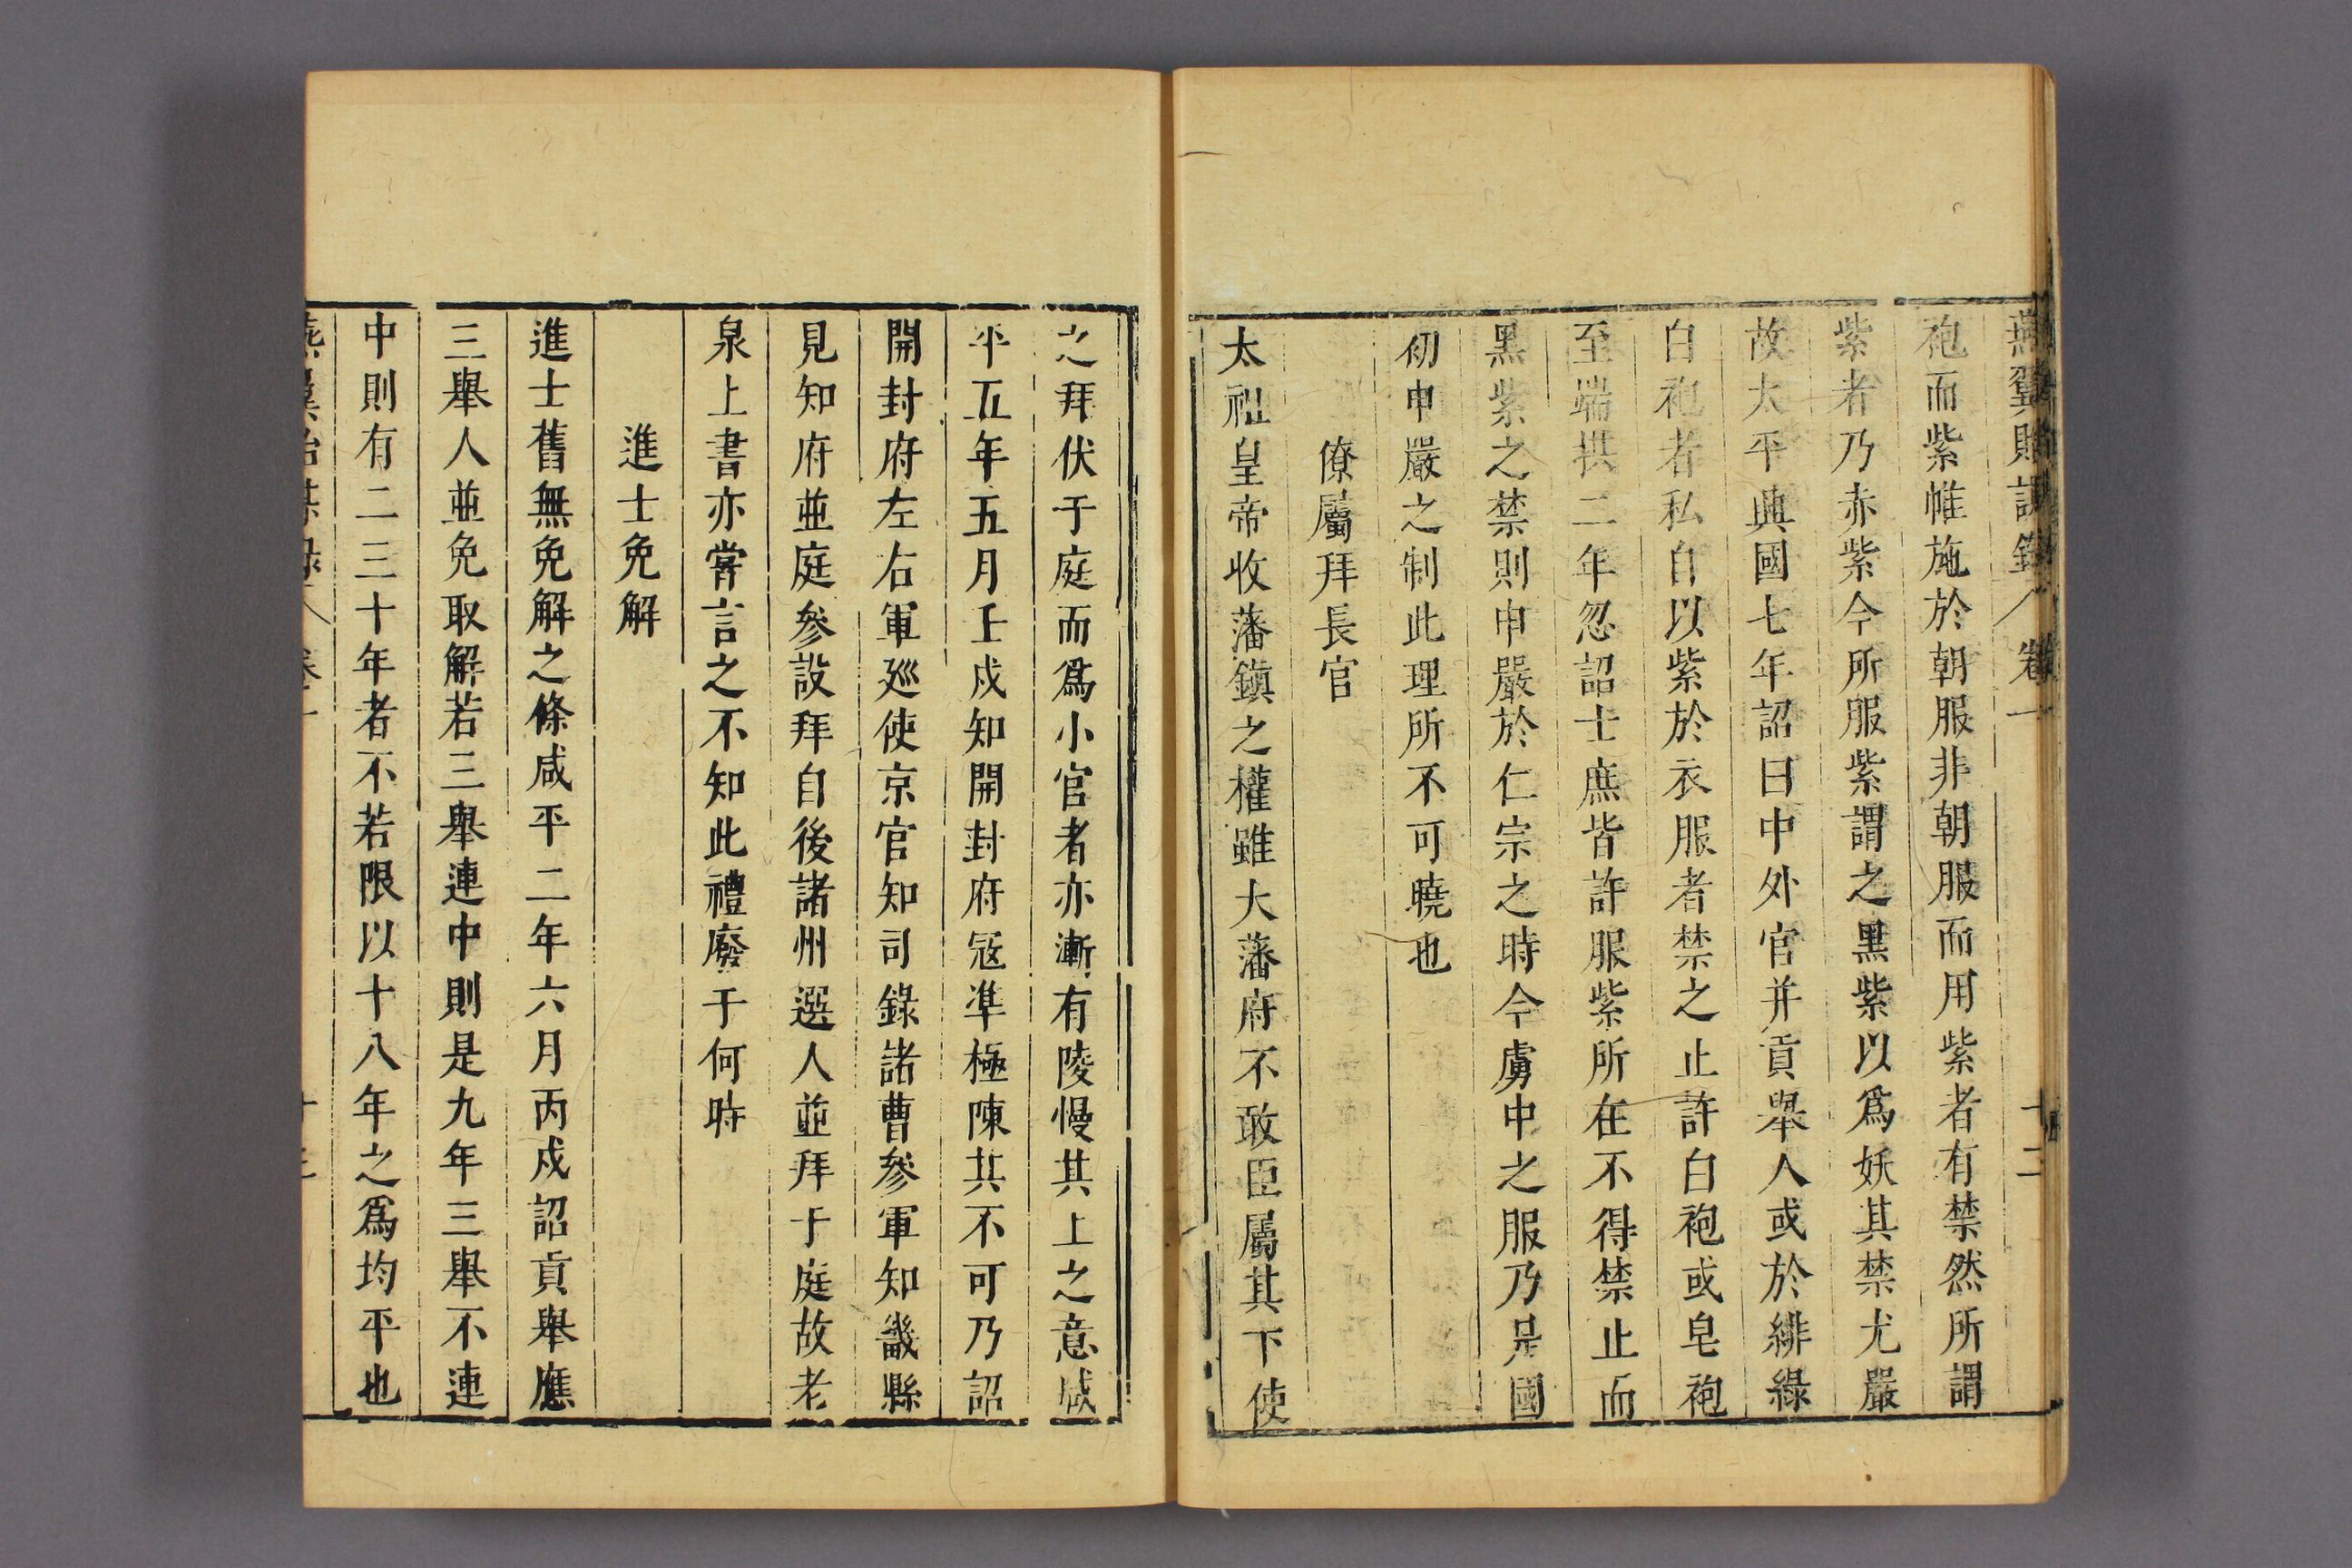 燕翼貽謀錄 卷一 十二
袍而紫帷施於朝服非朝服而用紫者有禁然所謂
紫者乃赤紫今所服紫謂之黑紫以爲妖其禁尤嚴
故太平興國七年詔曰中外官并貢舉人或於緋綠
白袍者私自以紫於衣服者禁之止許白袍或皂袍
至端拱二年忽詔士庶皆許服紫所在不得禁止而
黑紫之禁則申嚴於仁宗之時今虜中之服乃是國
初申嚴之制此理所不可曉也
僚屬拜長官
太祖皇帝收藩鎭之權雖大藩府不敢臣屬其下使
之拜伏于庭而爲小官者亦漸有陵慢其上之意咸
平五年五月壬戌知開封府冦凖極陳其不可乃詔
開封府左右軍廵使京官知司錄諸曹參軍知畿縣
見知府並庭參設拜自後諸州選人並拜于庭故老
泉上書亦嘗言之不知此禮廢于何時
進士免解
進士舊無免解之條咸平二年六月丙戌詔貢舉應
三舉人並免取解若三舉連中則是九年三舉不連
中則有二三十年者不若限以十八年之爲均平也
燕翼貽謀錄 卷一 十三